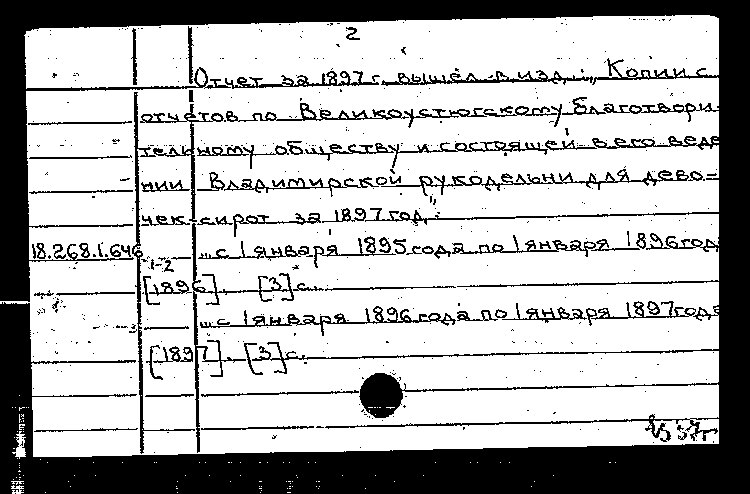 2
Отчет за 1897 г. вышел в изд.: „Копии с
отчетов по Великоустюгскому благотвори-
тельному обществу и состоящей в его веде
нии Владимирской рукодельни для дево=
чек-сирот за 1897 год":
18.268.1.646 ...с 1 января 1895 года по 1 января 1896 год
1-2
[1896]. [3] с.
...с 1 января 1896 года по 1 января 1897 года
[1897]. [3] с.